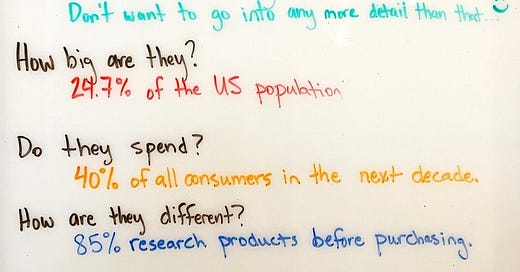 Don't want to go into any more detail than that...
How big are they?
24.7% of the US population
Do they spend?
40% of all consumers in the next decade.
How are they different?
85% research products before purchasing.